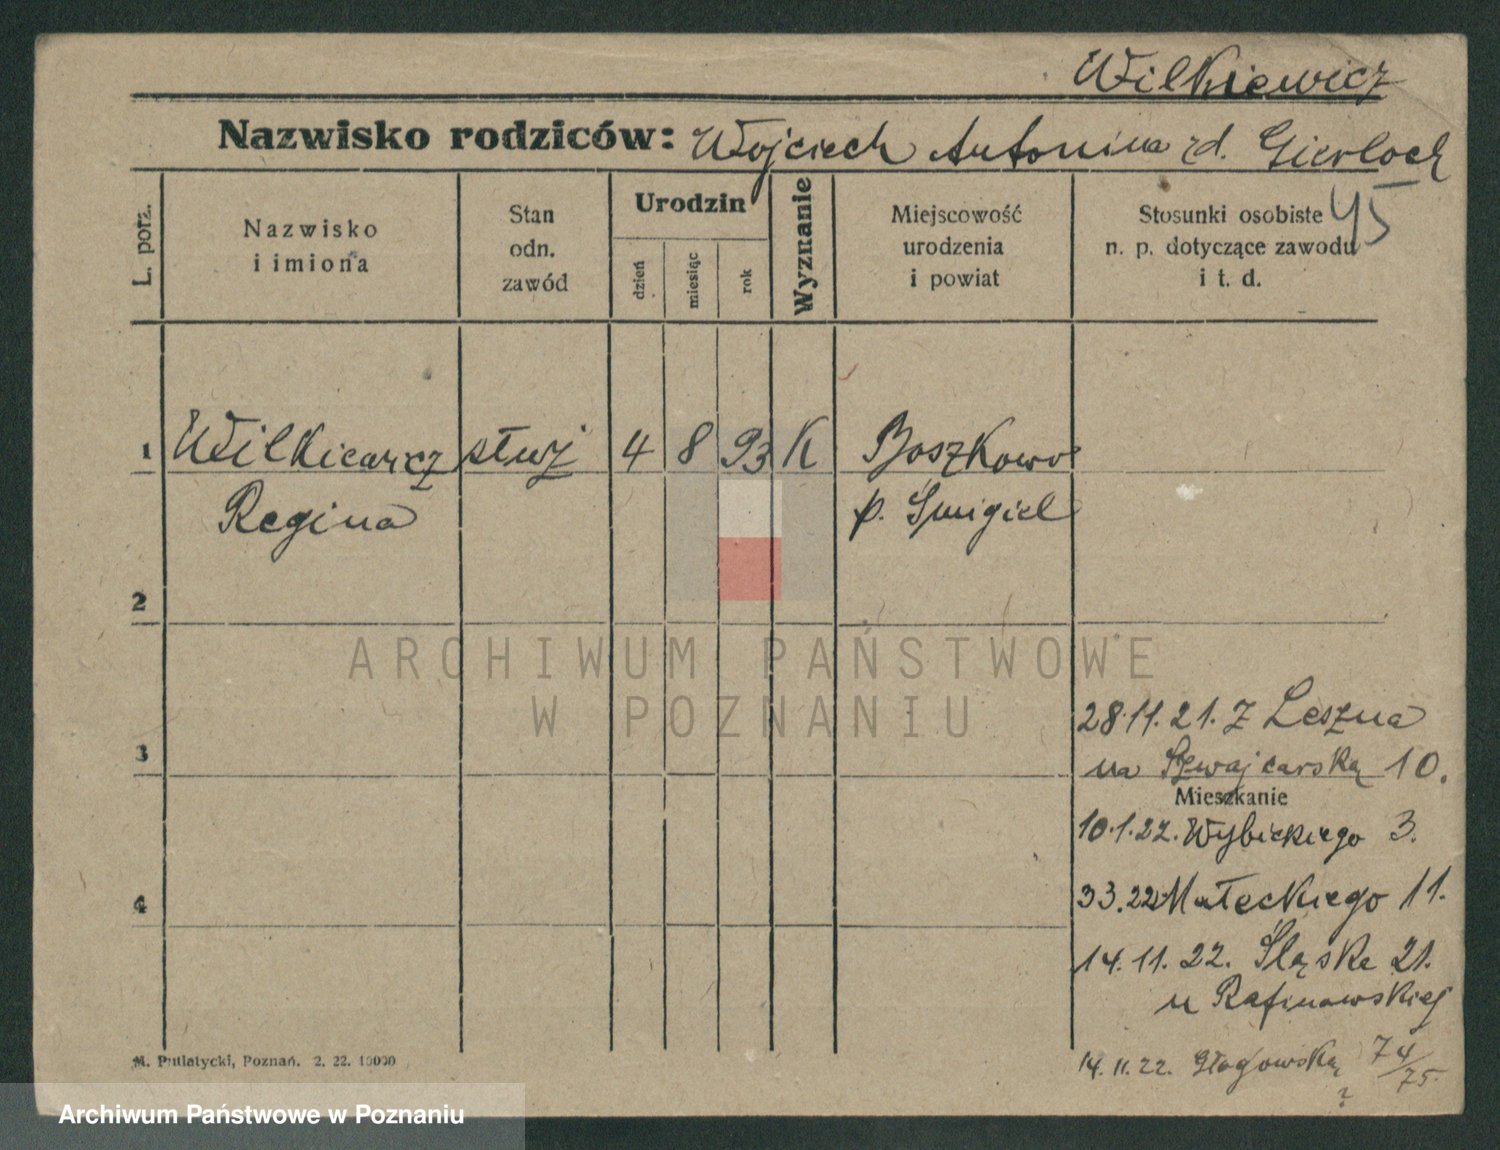 Wilkiewicz
Nazwisko rodziców: Wojciech Antonina rd. Gierloch
45
L. porz.
Nazwisko
i imiona
Stan
odn.
zawód
Urodzin
dzień
miesiąc
rok
Wyznanie
Miejscowość
urodzenia
i powiat
Stosunki osobiste
n. p. dotyczące zawodu
i t. d.
1 Wilkiewicz służ 4 8 93 K Boszkowo
Regina p. Śmigiel
2
ARCHIWUM PAŃSTWOWE
W POZNANIU
28.11.21. Z Leszna
3
na Szwajcarską 10.
Mieszkanie
10.1.22. Wybickiego 3.
4
3 3.22 Małeckiego 11.
14.11.22. Śląska 21.
u
14.11.22. Głogowska 74/75.
?
M. Putiatycki, Poznań. 2. 22. 10000
Archiwum Państwowe w Poznaniu